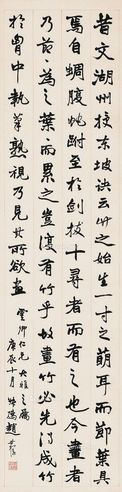 昔文湖州授东坡诀云竹之始生一寸之萌耳而節葉具
焉自蜩腹蛇蚹至於劍拔十尋者而有之也今畫者
乃節節為之葉葉而累之豈復有竹乎故畫竹必先得成竹
於胷中執筆熟視乃見其所欲畫
雲卿仁兄大雅之屬
庚辰十月